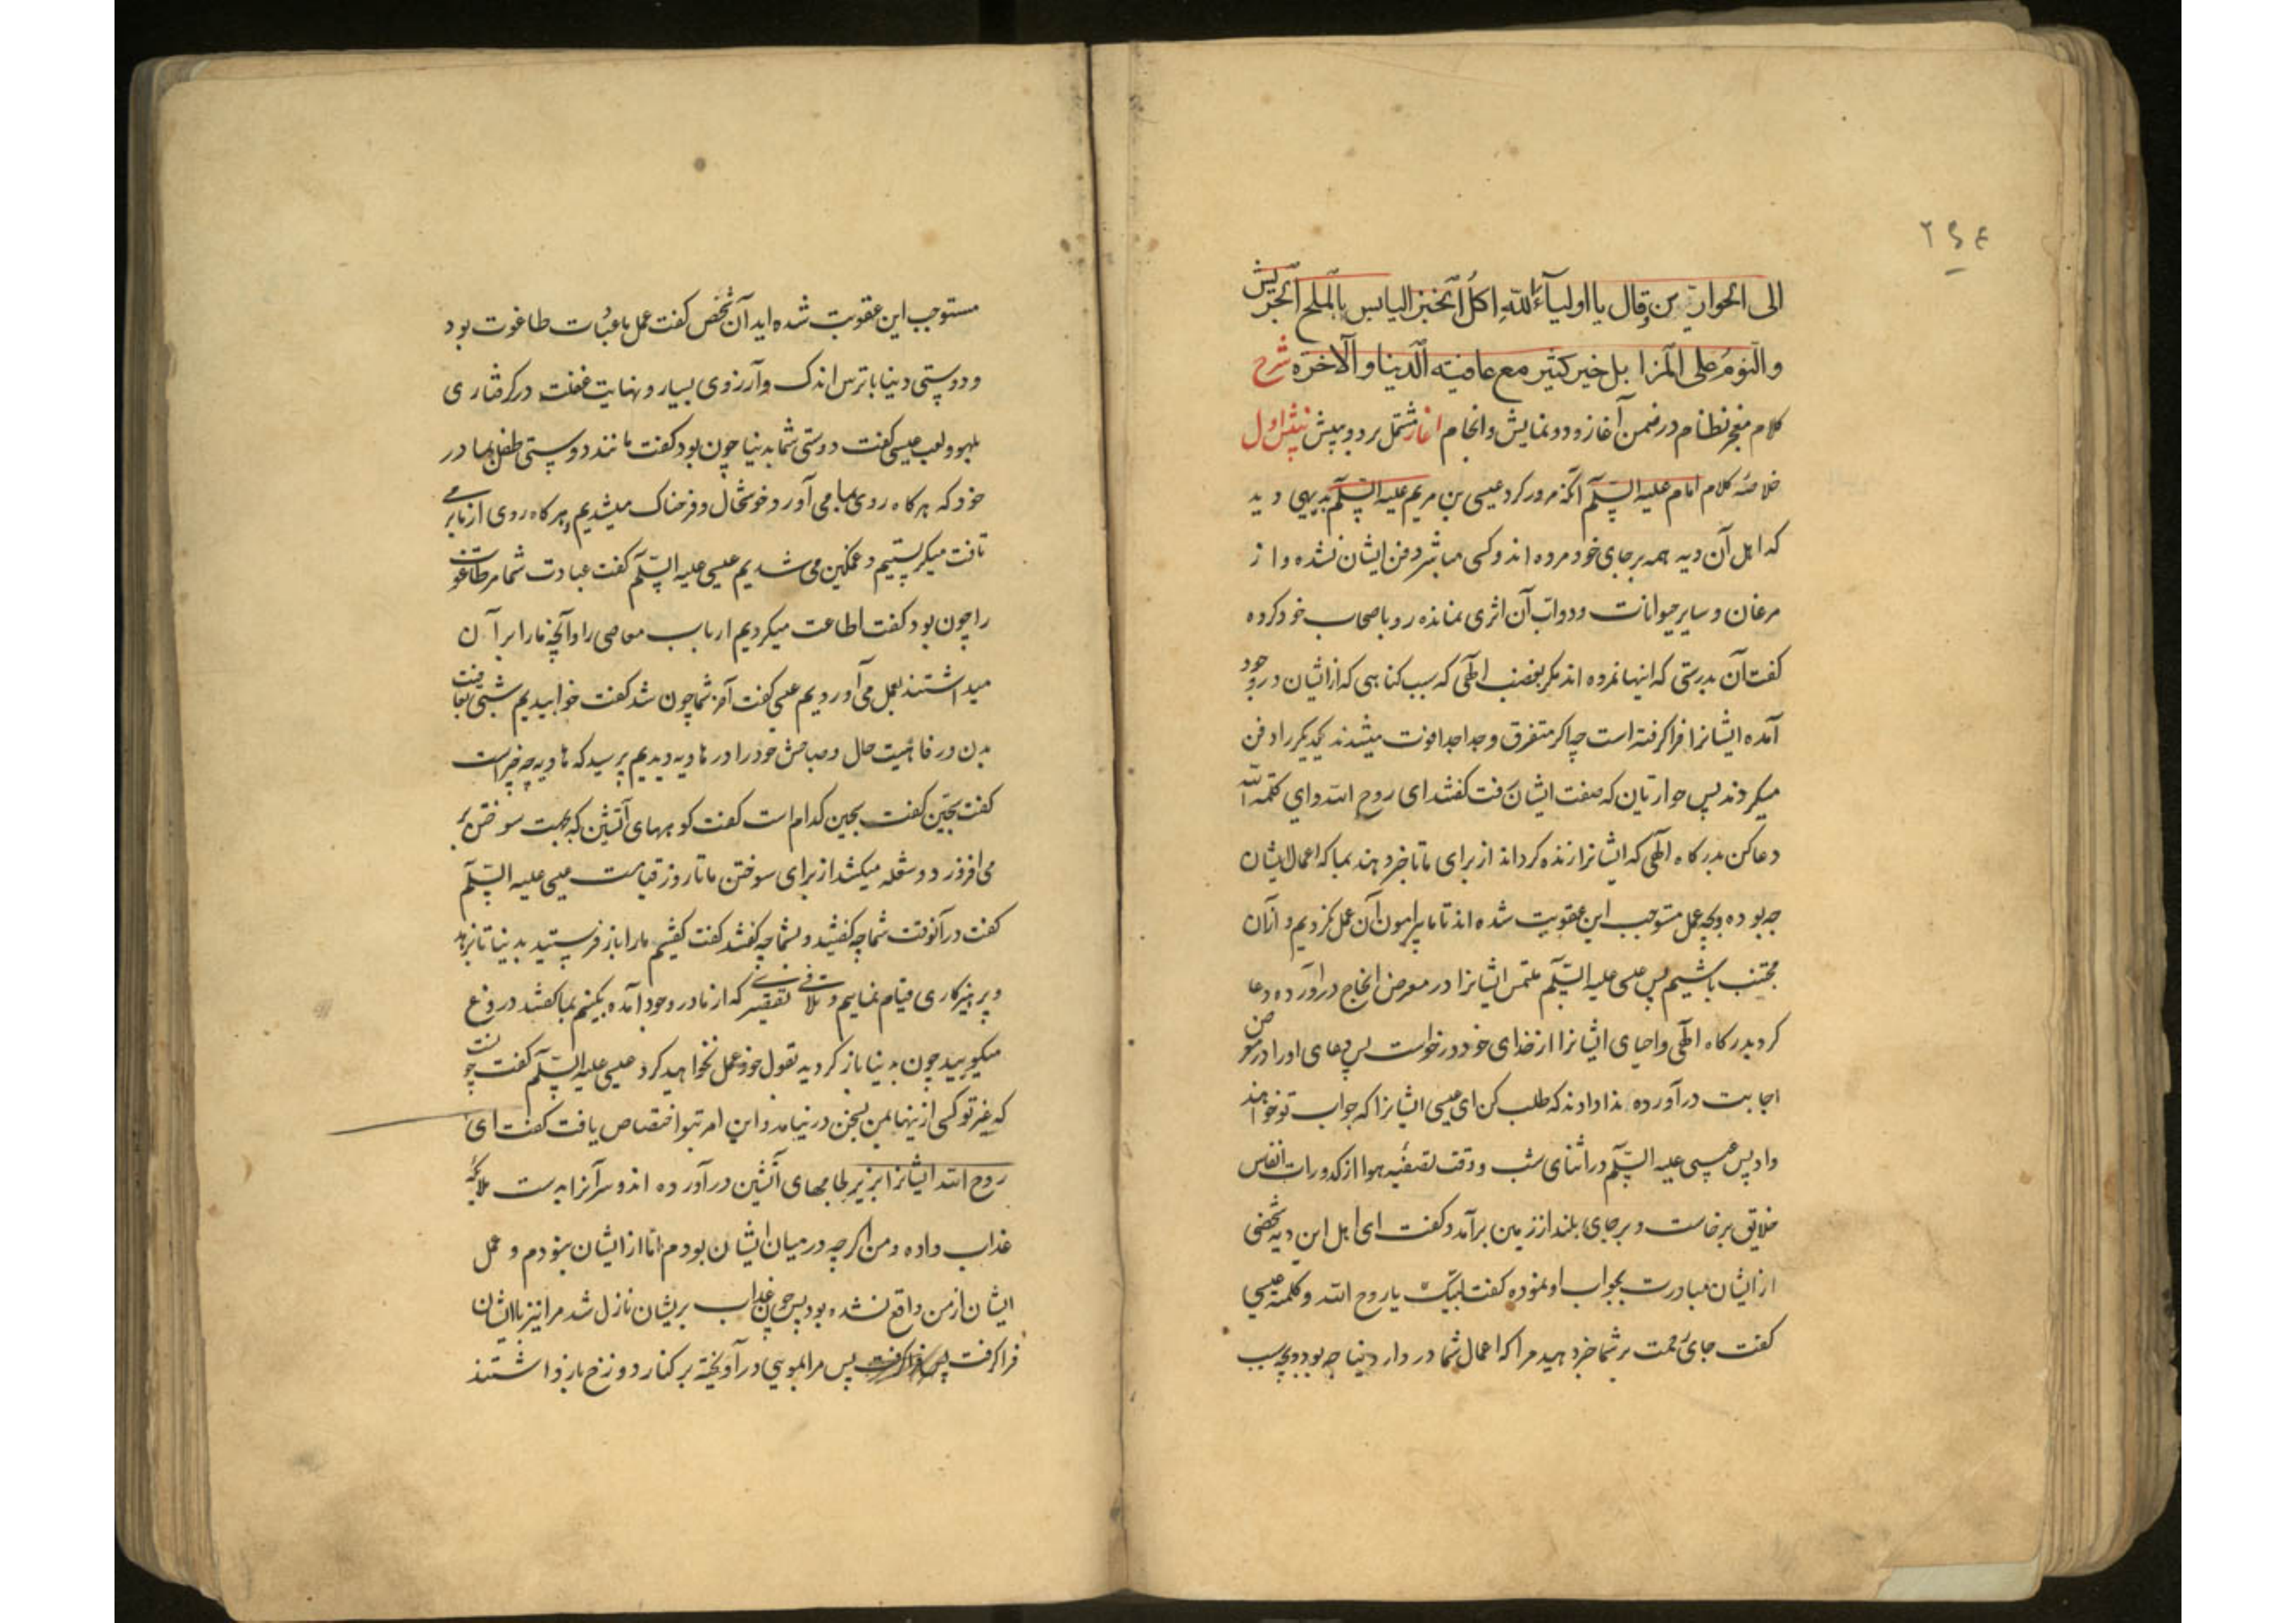 ۲۶۴
الی الحوارین وقال یا اولیآء الله اکل الخبز الیابس بالملح الجریش
والنوم علی المزابل خیر کثیر مع عافیته الدنیا والآخرة شرح
کلام معجز نظام در ضمن آغاز و دو نمایش و انجام آغاز مشتمل بر دو بینش بینش اول
خلاصهٔ کلام امام علیه السلم آنکه مرور کرد عیسی بن مریم علیه السلم بدیهی و دید
که اهل آن دیه همه بر جای خود مرده اند و کسی مباشر دفن ایشان نشده و از
مرغان و سایر حیوانات و دواب آن اثری نمانده رو باصحاب خود کرده
گفت آن بدرستی که اینها نمرده اند مکر بغضب الهی که سبب کناهی که از ایشان در وجود
آمده ایشانرا فرا کرفته است چه اکر متفرق و جدا جدا فوت میشدند یکدیکر را دفن
میکردند پس حواریان که صفت ایشان گفتند ای روح الله و ای کلمة الله
دعا کن بدرکاه الهی که ایشانرا زنده کرداند از برای ما تا خبر دهند بما که اعمال ایشان
چه بوده و بچه عمل مستوجب این عقوبت شده اند تا ما پیرامون آن عمل نکردیم و از آن
مجتنب باشیم پس عیسی علیه السلم ملتمس ایشانرا در معرض انجاح در آورده دعا
کرد بدرکاه الهی و احیای ایشانرا از خدای خود درخواست پس دعای او را در معرض
اجابت در آورده ندا دادند که طلب کن ای عیسی ایشانرا که جواب تو خواهند
داد پس عیسی علیه السلم در اثنای شب و وقت تصفیه هوا از کدورات انفاس
خلایق برخاست و بر جای بلند از زمین برآمد و گفت ای اهل این دیه شخصی
از ایشان مبادرت بجواب او نموده گفت لبیک یا روح الله و کلمته عیسی
گفت جای رحمت بر شما خبر دهید مرا که اعمال شما در دار دنیا چه بود و بچه سبب
مستوجب این عقوبت شده اید آن شخص گفت عمل ما عبادت طاغوت بود
و دوستی دنیا با ترس اندک و آرزوی بسیار و نهایت غفلت در کرفتاری
بلهو و لعب عیسی گفت دوستی شما بدنیا چون بود گفت مانند دوستی طفل بمادر
خود که هر کاه روی بما می آورد خوشحال و فرحناک میشدیم و هر کاه روی از ما بر می
تافت میکریستیم و غمکین می شدیم عیسی علیه السلم گفت عبادت شما مر طاغوت
را چون بود گفت اطاعت میکردیم ارباب معاصی را و آنچه ما را بر آن
میداشتند بعمل می آوردیم عیسی گفت آخر شما چون شد گفت خوابیدیم شبی بعافیت
بدن و رفاهیت حال و صباحش خود را در هاویه دیدیم پرسید که هاویه چه چیز است
گفت سجین گفت سجین کدام است گفت کوههای آتشین که بجهت سوختن بر
می افروزد و شعله میکشد از برای سوختن ما تا روز قیامت عیسی علیه السلم
گفت در آنوقت شما چه گفتید و بشما چه گفتند گفت گفتیم ما را باز فرستید بدنیا تا بزهد
و پرهیزکاری قیام نماییم و تلافی تقصیری که از ما در وجود آمده بکنیم بما گفتند دروغ
میکویید چون بدنیا باز کردید بقول خود عمل نخواهید کرد عیسی علیه السلم گفت چونست
که غیر تو کسی از اینها بمن بسخن در نیامد و این امر بتو اختصاص یافت گفت ای
روح الله ایشانرا بزیر لجامهای آتشین در آورده اند و سر آنرا بدست ملائکه
عذاب داده و من اکرچه در میان ایشان بودم اما از ایشان نبودم و عمل
ایشان از من واقع نشده بود پس چون عذاب بریشان نازل شد مرا نیز با ایشان
فرا کرفت پس مرا بمویی در آویخته بر کنار دوزخ باز داشتند